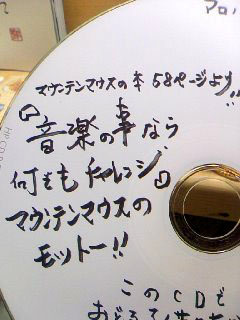 マウンテンマウスの本 58ページより!!
『音楽の事なら
何でもチャレンジ』
マウンテンマウスの
モットー!!
このCDで